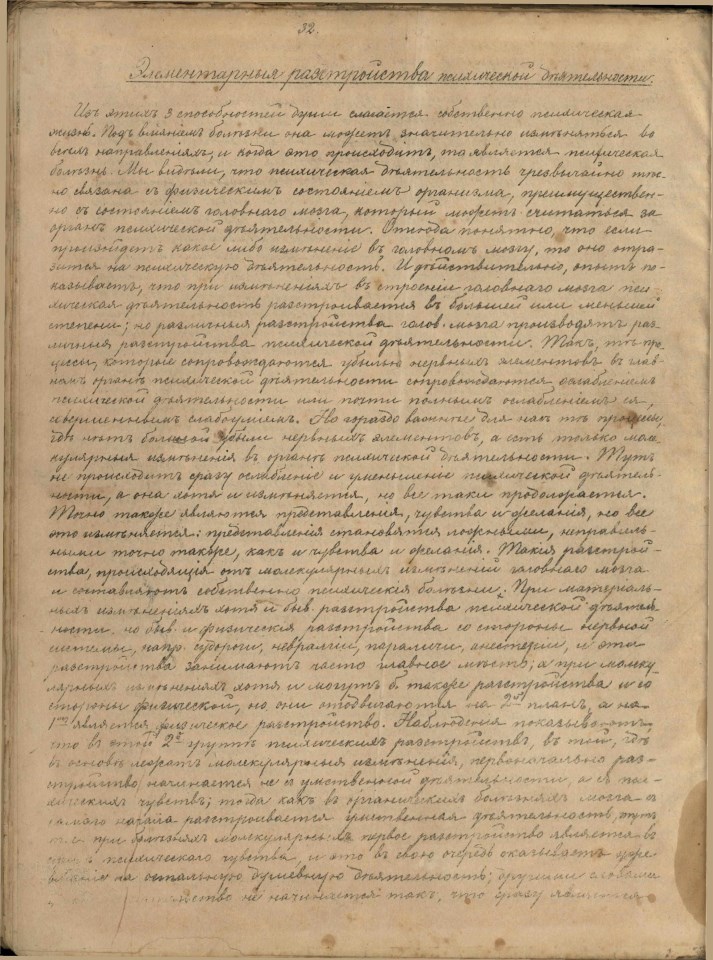 32.
Элементарныя разстройства психической дѣятельности.
Изъ этихъ 3 способностей души слагается собственно психическая
жизнь. Подъ вліяніемъ болѣзни она можетъ значительно измѣняться во
всѣхъ направленіяхъ, и когда это происходитъ, то является психическая
болѣзнь. Мы видѣли, что психическая дѣятельность чрезвычайно тѣс-
но связана съ физическимъ состояніемъ организма, преимуществен-
но съ состояніемъ головнаго мозга, который можетъ считаться за
органъ психической дѣятельности. Отсюда понятно, что если
произойдетъ какое либо измѣненіе въ головномъ мозгу, то оно отра-
зится на психическую дѣятельность. И дѣйствительно, опытъ по-
казываетъ, что при измѣненіяхъ въ строеніи головнаго мозга пси-
хическая дѣятельность разстроивается въ большей или меньшей
степени; но различныя разстройства голов. мозга производятъ раз-
личныя разстройства психической дѣятельности. Такъ, тѣ про-
цессы, которые сопровождаются убылью нервныхъ элементовъ въ глав-
номъ органѣ психической дѣятельности сопровождаются ослабленіемъ
психической дѣятельности или почти полнымъ ослабленіемъ ея,
совершеннымъ слабоуміемъ. Но гораздо важнѣе для насъ тѣ процессы,
гдѣ нѣтъ большой убыли нервныхъ элементовъ, а есть только моле-
кулярныя измѣненія въ органѣ психической дѣятельности. Тутъ
не происходитъ сразу ослабленіе и уменьшеніе психической дѣятель-
ности, а она хотя и измѣняется, но все таки продолжается.
Точно также являются представленія, чувства и желанія, но все
это измѣняется: представленія становятся ложными, неправиль-
ными точно также, какъ и чувства и желанія. Такія разстрой-
ства, происходящія отъ молекулярныхъ измѣненій головнаго мозга
и составляютъ собственно психическія болѣзни. При матеріаль-
ныхъ измѣненіяхъ хотя и быв. разстройства психической дѣятель-
ности, но быв. и физическія разстройства со стороны нервной
системы, напр. судороги, невралгіи, параличи, анестезіи, и эти
разстройства занимаютъ часто главное мѣсто; а при молеку-
лярныхъ измѣненіяхъ хотя и могутъ б. также разстройства и со
стороны физической, но они отодвигаются на 2ой планъ, а на
1мъ является психическое разстройство. Наблюденія показываютъ,
что въ этой 2й группѣ психическихъ разстройствъ, въ той, гдѣ
въ основѣ лежатъ молекулярныя измѣненія, первоначально раз-
стройство начинается не съ умственной дѣятельности, а съ пси-
хическихъ чувствъ; тогда какъ въ органическихъ болѣзняхъ мозга съ
самаго начала разстроивается умственная дѣятельность, тутъ
т. е. при болѣзняхъ молекулярныхъ первое разстройство является въ
психическаго чувства, и это въ свою очередь оказываетъ
вліяніе на остальную душевную дѣятельность; другими словами
не начинается такъ, что сразу является